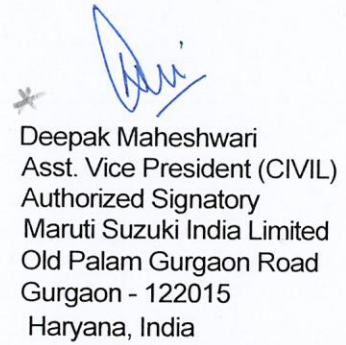 Deepak Maheshwari
Asst. Vice President (CIVIL)
Authorized Signatory
Maruti Suzuki India Limited
Old Palam Gurgaon Road
Gurgaon - 122015
Haryana, India